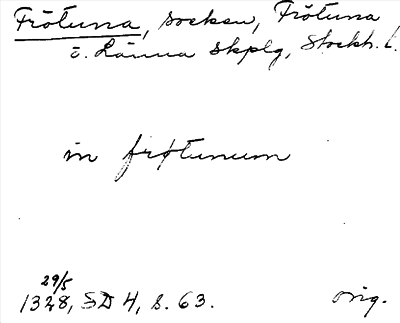 Frötuna, socken, Frötuna
o. Länna skplg, Stockh. l.
in frøtunum
29/5
1328, SD 4, s. 63. orig.